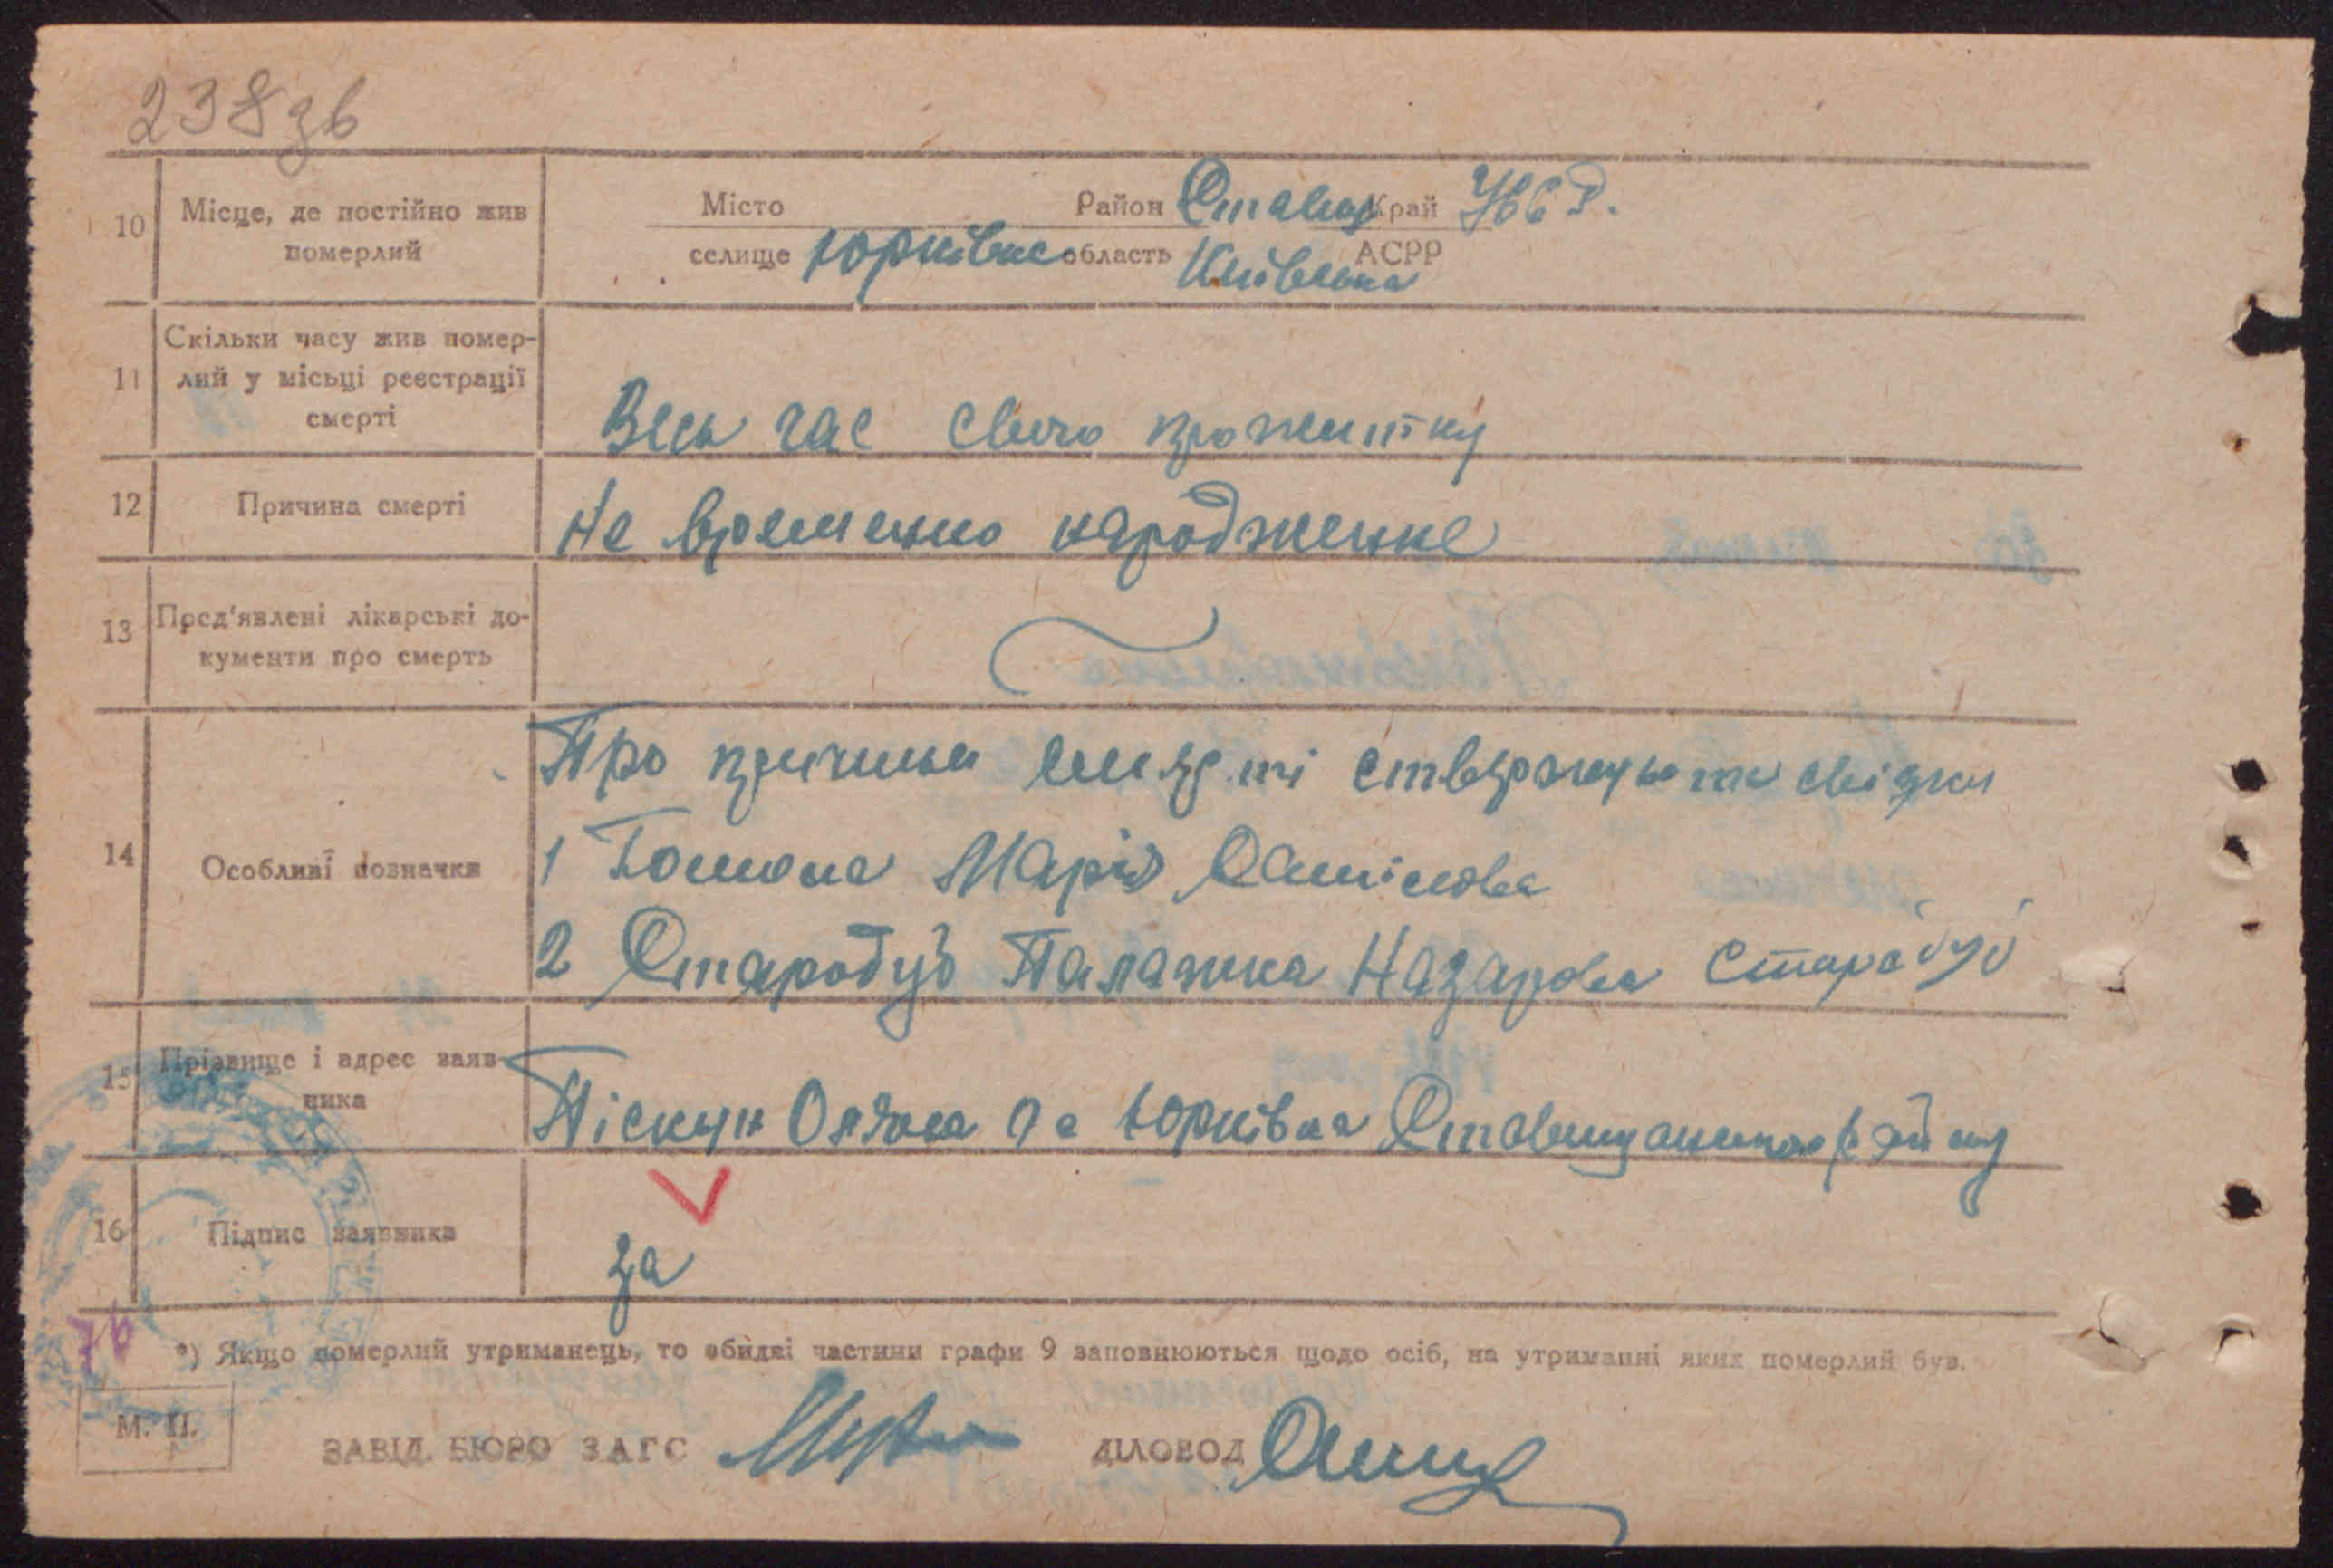 238 зв
10 Місце, де постійно жив померлий
Місто Район Ставищ Край УССР.
селище Юрківка область Київська АСРР
11 Скільки часу жив помер-
лий у місьці реєстрації
смерті
Весь час свого прожитку
12 Причина смерті Не временно народження
13 Пред'явлені лікарські до-
кументи про смерть
Про причини смерти ствержують свідки
14 Особливі позначки
1 Марія
2 Стародуб Палажка Назарова Стародуб
15 Прізвище і адрес заяв-
ника
Піскун Оляна с Юрківка Ставищанського району
16 Підпис заявника
за
*) Якщо померлий утриманець, то обидві частини графи 9 заповнюються щодо осіб, на утриманні яких померлий був.
М. П.
ЗАВІД. БЮРО ЗАГС ДІЛОВОД